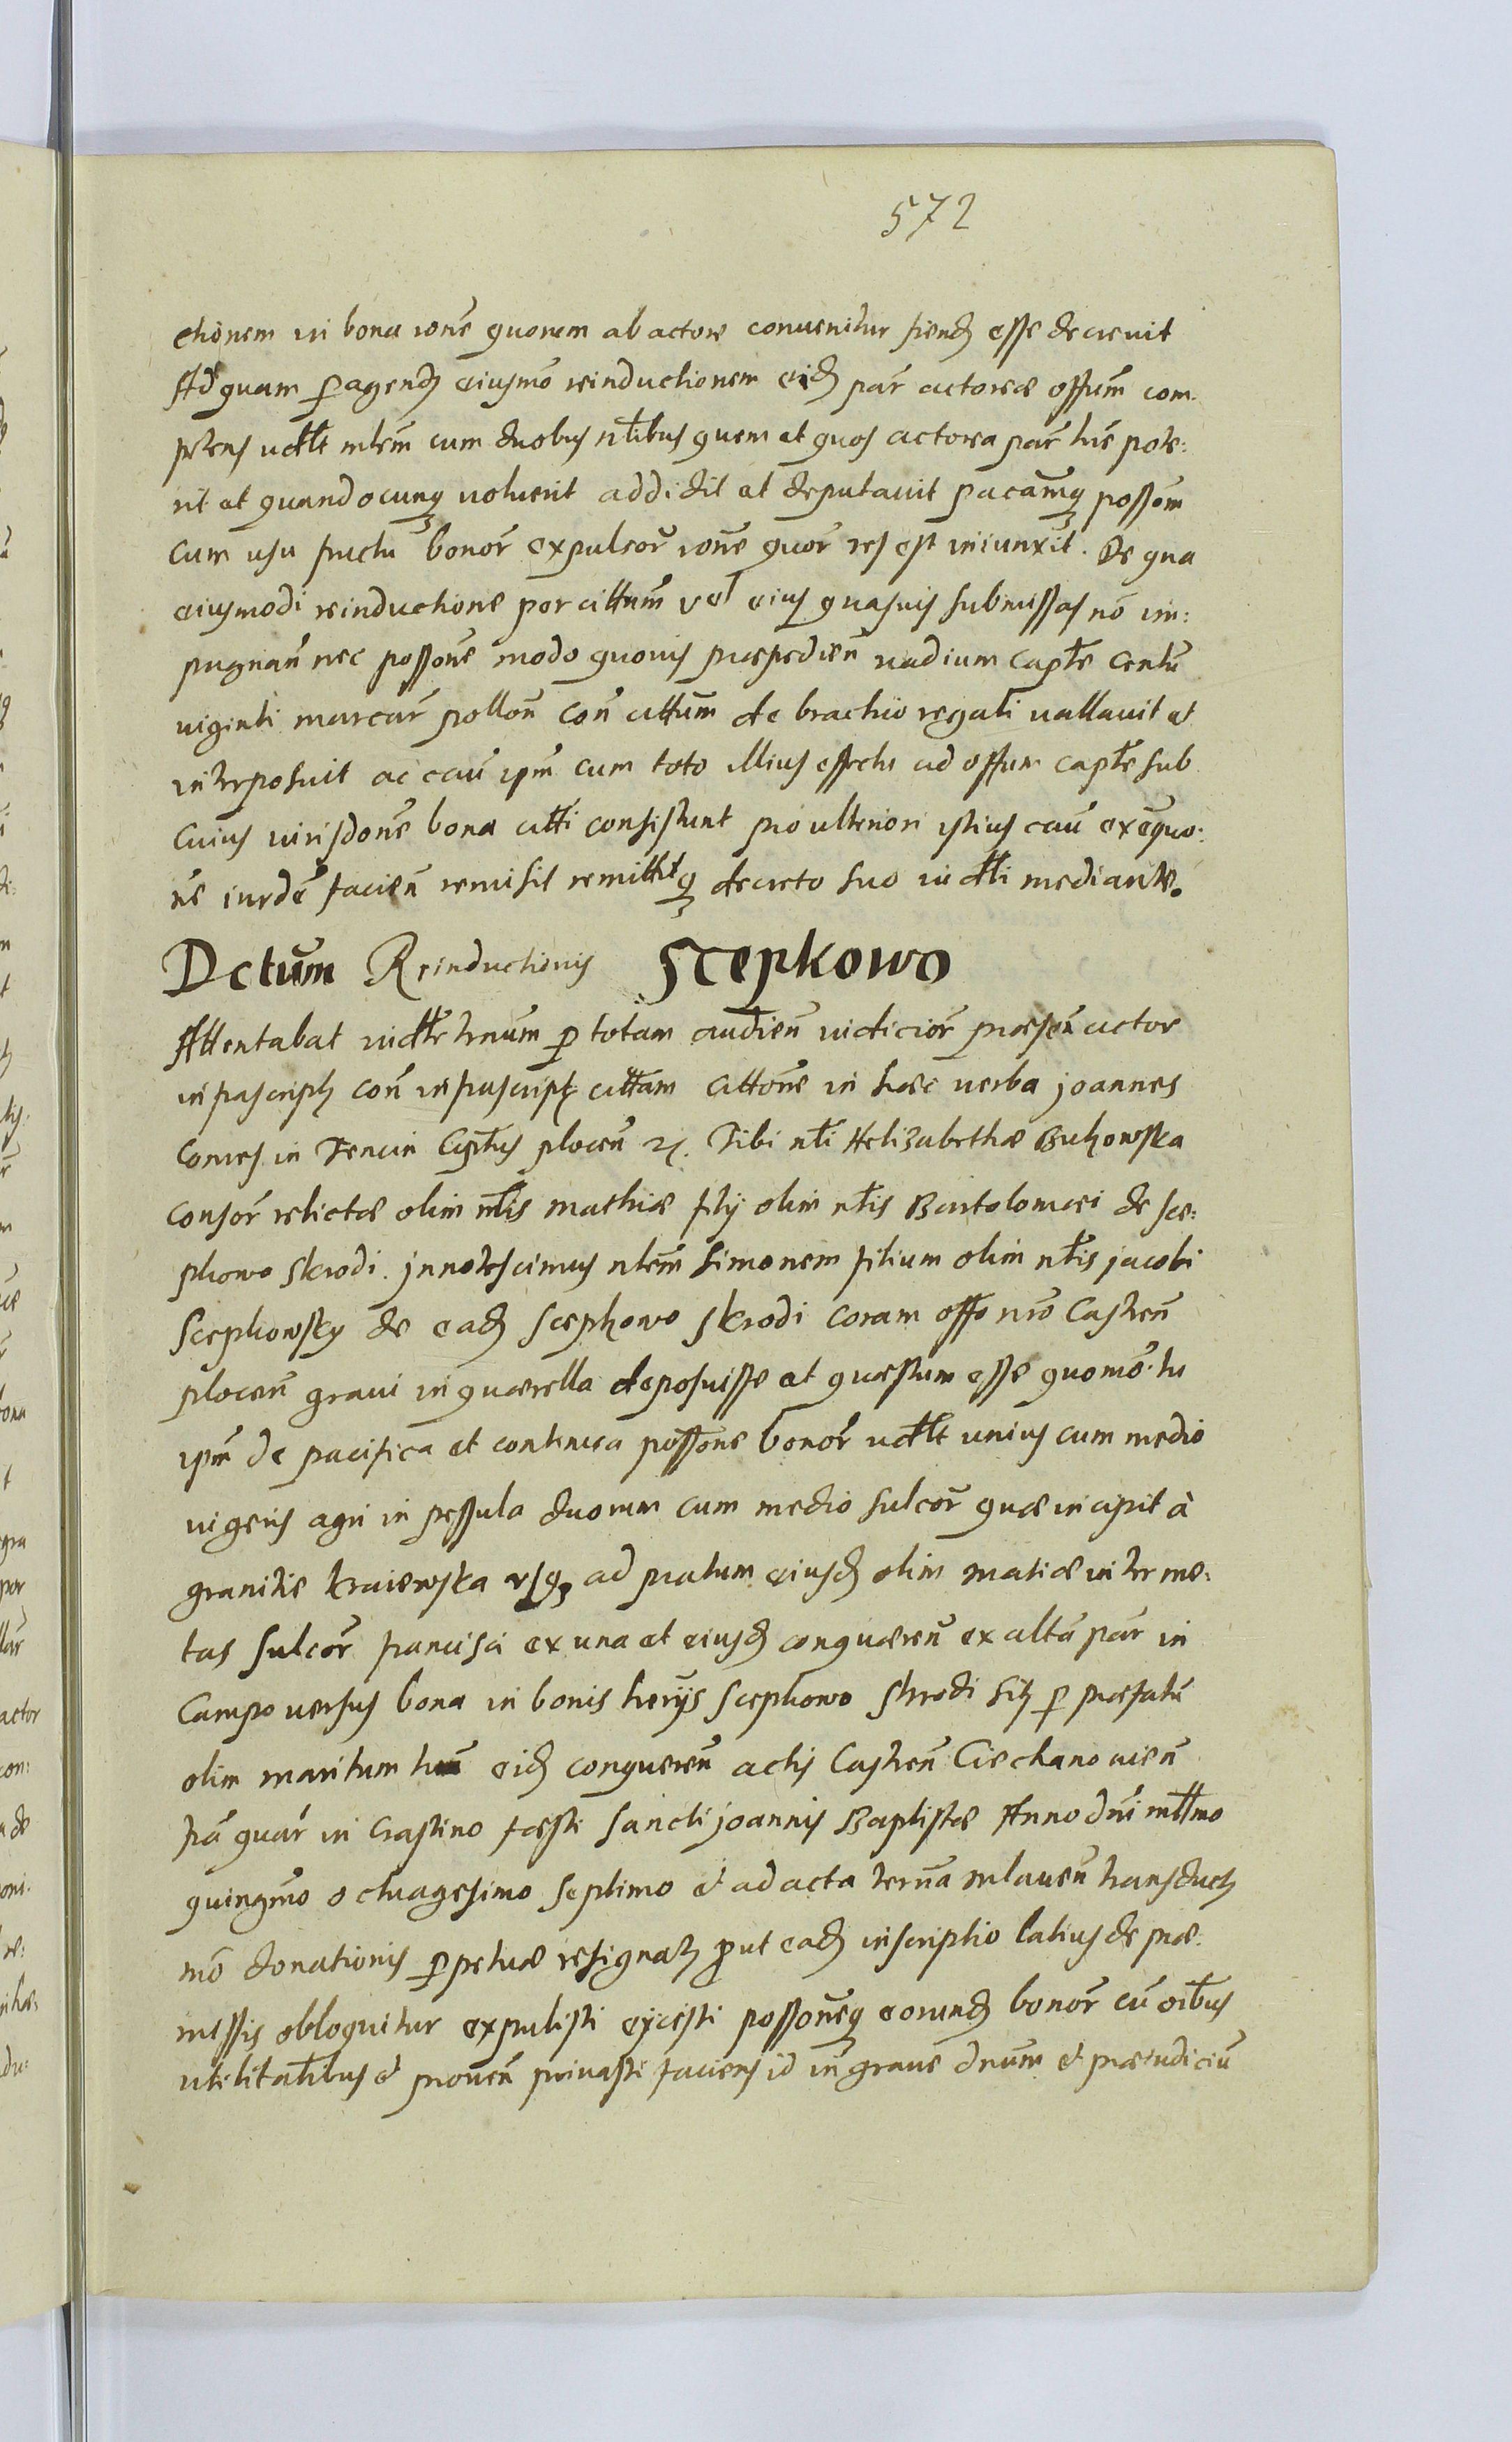 572
ctionem in bona rõne quorum ab actore convenitur fiend esse decrevit
Ad quam p agend eiusmõ reinductionem eid par actoreæ offum com-
petens vdltt mlem cum duobus ntlibus quem et quos actorea pars hũe pote:
rit et quandocunq voluerit addidit et deputavit pacamq possom
cum usu fructu bonor expulsor rõne quor res est iniunxit. De qua
eiusmodi reinductione per cittatum vel eius quasvis submissas nõ im:
pugnan nec possone modo quovis præpedien vadium capte centu
viginti marcar pollon con cittatum de brachio regali vallavit et
interposuit ac cau ipm cum toto illius effectu ad offum capte sub
cuius iurisdone bona citti consistunt pro ulteriori istius cau exequo:
ne iurde facien remisit remittitq decreto suo iudtli mediante.
Dctum Reinductionis Scepkowo
Attentabat iudltr trnum p totam audien iudicior præsen actor
infrascripts con infrascript cittam cittone in hæc verba Joannes
Comes in Tencin Cptus plocen etc. Tibi ntli Helizabethæ Bukowska
consor relictæ olim ntlis Mathiæ filij olim ntlis Bartolomæi de Sce:
pkowo Skrodi. Jnnotescimus ntlem Simonem filium olim ntlis Jacobi
Scepkowsky de ead Scepkowo Skrodi coram offo nro Castren
plocen gravi in quærella deposuisse et quæstum esse quomõ tu
ipm de pacifica et continua possone bonor vdltt unius cum medio
vigeris agri in pessula duorum cum medio sulcor quæ incipit à
granitie kraiewska usq ad pratum eiusd olim Matiæ inter me:
tas sulcor francisci ex una et eiusd conquæren ex alta par in
Campo versus bona in bonis heriis Scepkowo Skrodi sit p præfatu
olim maritum tuũ eid conqueren actis Castren Ciechanovien
fra quar in Crastino fæsti Sancti Joannis Baptistæ Anno dni mlltmo
quingmo octuagesimo septimo et ad acta terna mlaven transduct
mõ donationis ppetuæ resignat put ead inscriptio latius de præ
missis obloquitur expulisti eiecisti possoneq eorund bonor cũ oibus
utilitatibus et proven privasti faciens id in grave dnum et præiudiciũ